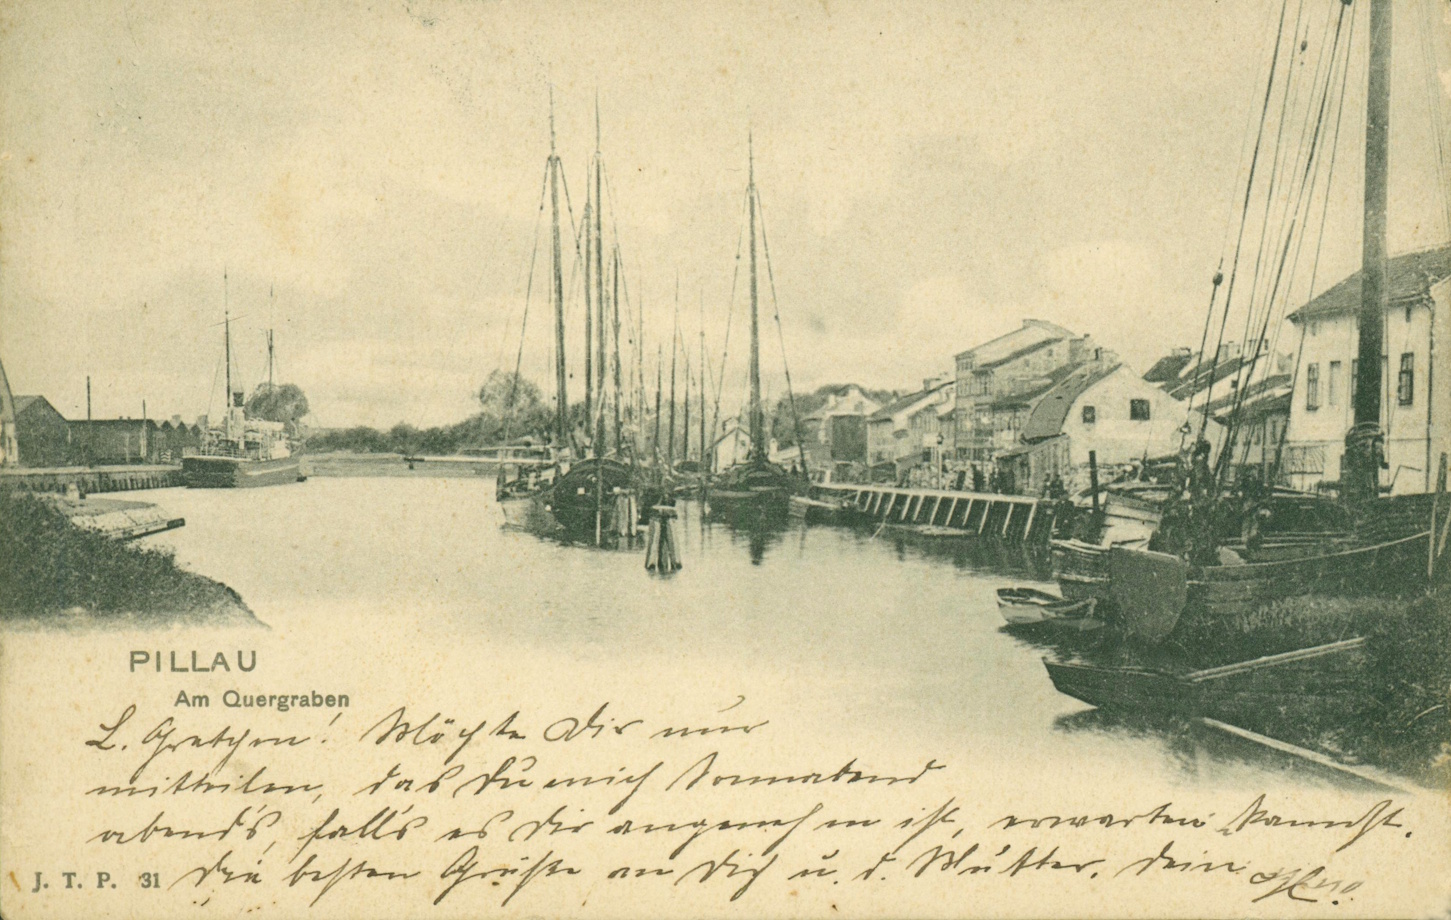 PILLAU
Am Quergraben
L. Gretchen! Möchte Dir nur
mitteilen, das Du mich Sonnabend
abend's, fall's es Dir angenehm ist, erwarten kannst.
Die besten Grüße an Dich u. d. Mutter. Dein
J. T. P. 31